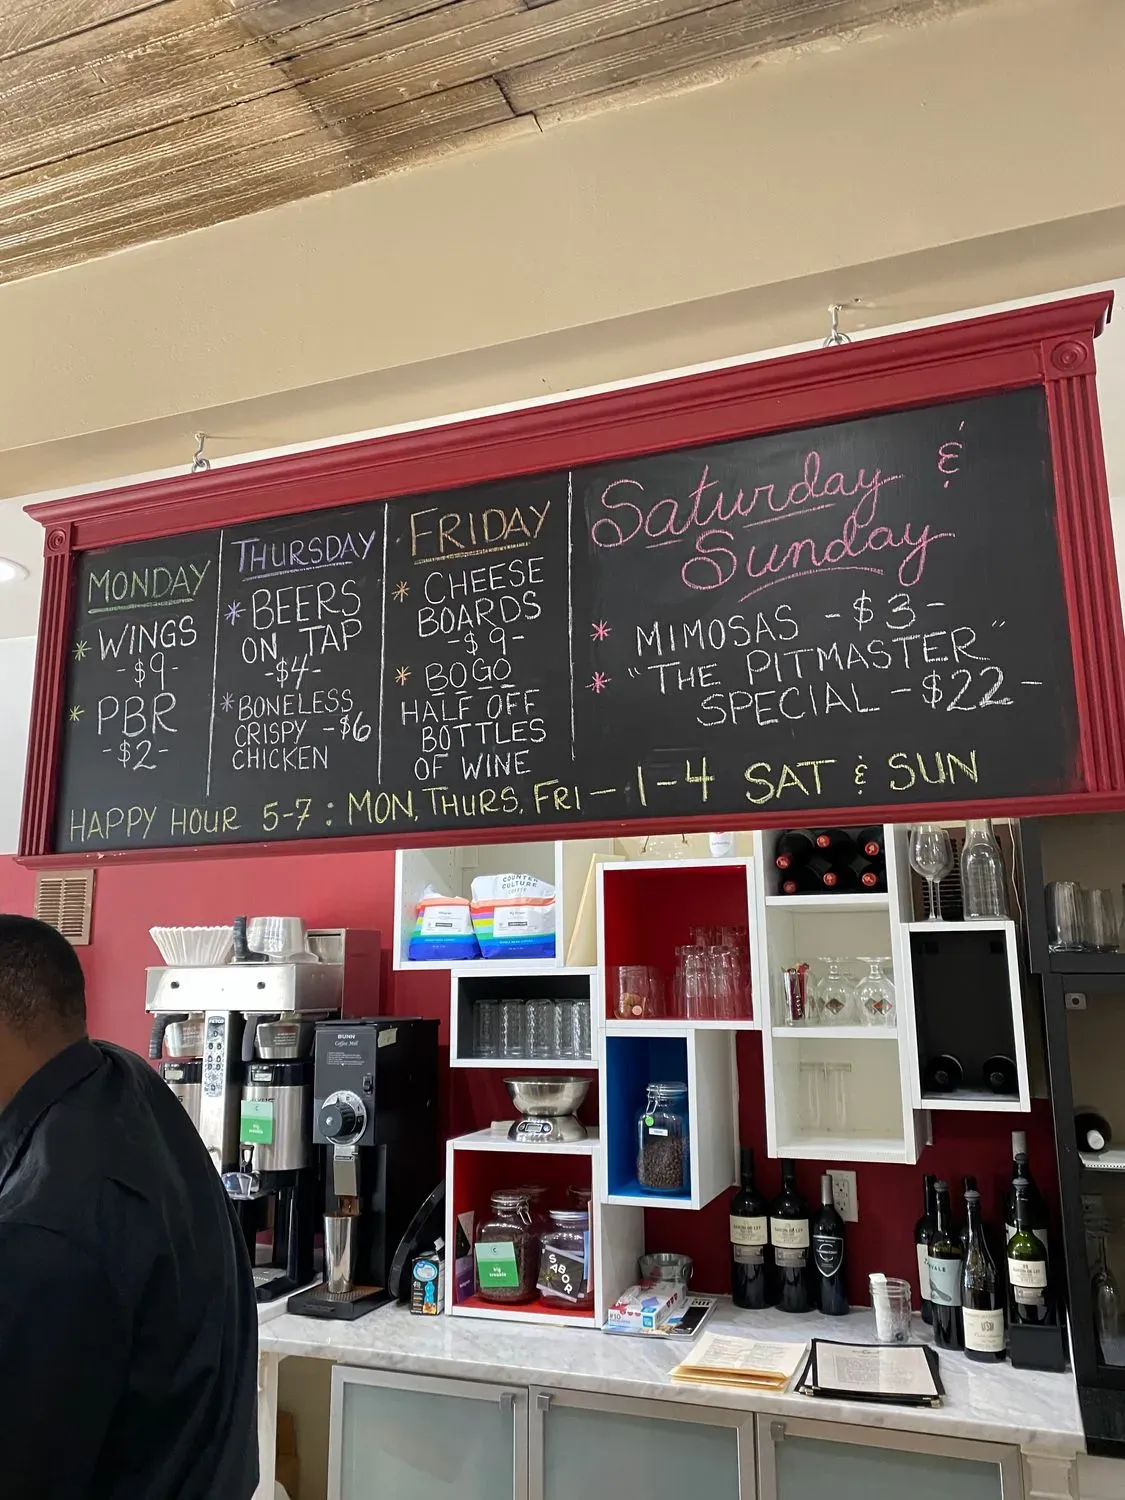 MONDAY
* WINGS
-$9-
* PBR
-$2-
THURSDAY
* BEERS
ON TAP
-$4-
* BONELESS
CRISPY -$6
CHICKEN
FRIDAY
* CHEESE
BOARDS
-$9-
* BOGO
HALF OFF
BOTTLES
OF WINE
Saturday &
Sunday
* MIMOSAS -$3-
* "THE PITMASTER"
SPECIAL -$22-
HAPPY HOUR 5-7: MON, THURS, FRI - 1-4 SAT & SUN
COUNTER
CULTURE
COFFEE
BUNN
Coffee Mill
big
trouble
big
trouble
SABOR